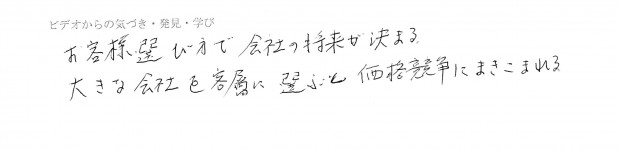 ビデオからの気づき・発見・学び
お客様選び方で会社の将来が決まる
大きな会社を客層に選ぶと価格競争にまきこまれる